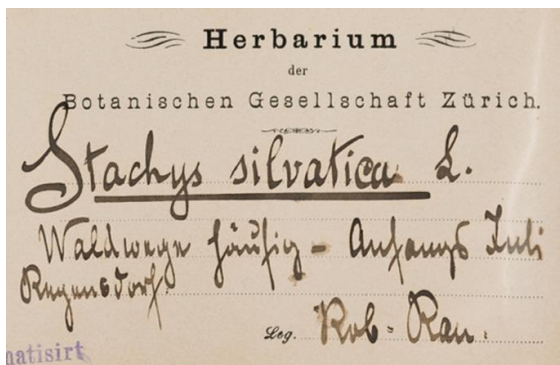 Herbarium
der
Botanischen Gesellschaft Zürich.
Stachys silvatica L.
Waldwege häufig - Anfangs Juli
Regensdorf.
Leg. Rob. Rau.
matisirt